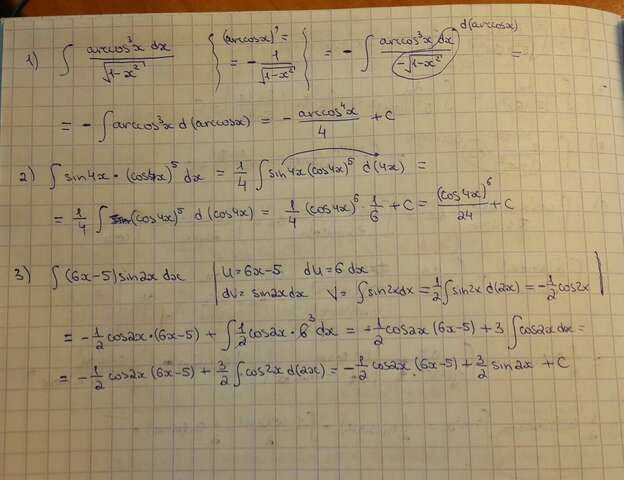 1) ∫ arccos³x dx / √(1-x²) { (arccosx)' = = - 1/√(1-x²) } = - ∫ arccos³x dx / -√(1-x²) d(arccosx) =
= - ∫ arccos³x d(arccosx) = - arccos⁴x / 4 + C
2) ∫ sin4x · (cos4x)⁵ dx = 1/4 ∫ sin4x (cos4x)⁵ d(4x) =
= 1/4 ∫ (cos4x)⁵ d(cos4x) = 1/4 (cos4x)⁶ · 1/6 + C = (cos4x)⁶ / 24 + C
3) ∫ (6x-5) sin2x dx | U = 6x-5 dU = 6 dx
dV = sin2x dx V = ∫ sin2x dx = 1/2 ∫ sin2x d(2x) = - 1/2 cos2x |
= - 1/2 cos2x · (6x-5) + ∫ 1/2 cos2x · 6 ³ dx = - 1/2 cos2x (6x-5) + 3 ∫ cos2x dx =
= - 1/2 cos2x (6x-5) + 3/2 ∫ cos2x d(2x) = - 1/2 cos2x (6x-5) + 3/2 sin2x + C